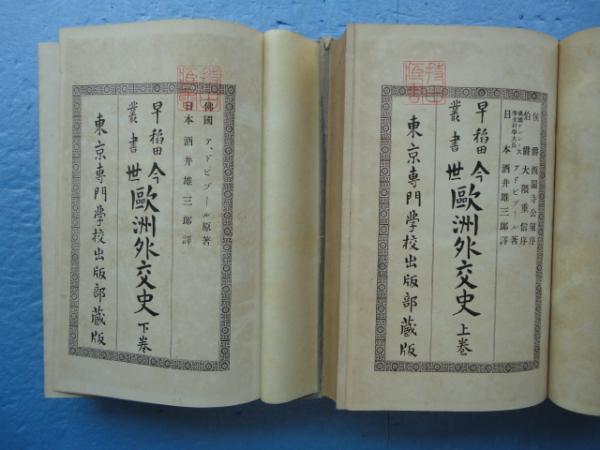 侯爵西園寺公望序
伯爵大隈重信序
アドビドール著
日本 酒井雄三郎譯
早稲田叢書
今世歐洲外交史 上巻
東京專門學校出版部藏版
佛國 ア、ドビドール原著
日本 酒井雄三郎譯
早稲田叢書
今世歐洲外交史 下巻
東京專門學校出版部藏版